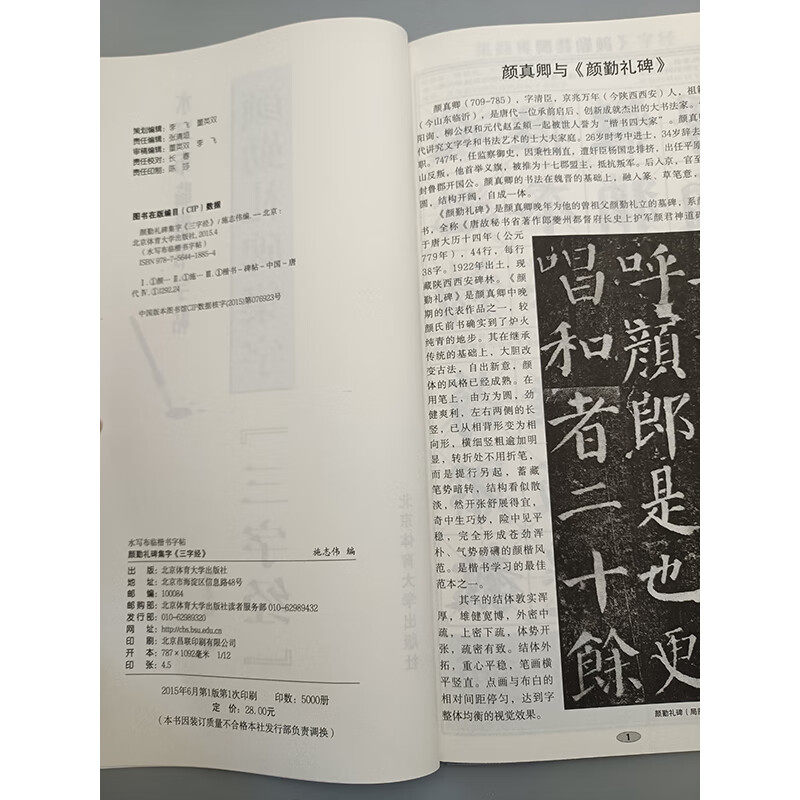 策划编辑：李 飞 董英双
责任编辑：张清垣
审稿编辑：董英双 李 飞
责任校对：长 春
责任印制：陈 莎
图书在版编目（CIP）数据
颜勤礼碑集字《三字经》/施志伟编. —北京：
北京体育大学出版社, 2015.4
（水写布临楷书字帖）
ISBN 978-7-5644-1885-4
Ⅰ. ①颜… Ⅱ. ①施… Ⅲ. ①楷书－碑帖－中国－唐
代 Ⅳ. ①J292.24
中国版本图书馆CIP数据核字(2015)第076923号
水写布临楷书字帖
颜勤礼碑集字《三字经》 施志伟 编
出 版：北京体育大学出版社
地 址：北京市海淀区信息路48号
邮 编：100084
邮 购 部：北京体育大学出版社读者服务部 010-62989432
发 行 部：010-62989320
网 址：http://cbs.bsu.edu.cn
印 刷：北京昌联印刷有限公司
开 本：787×1092毫米 1/12
印 张：4.5
2015年6月第1版第1次印刷 印数：5000册
定 价：28.00元
（本书因装订质量不合格本社发行部负责调换）
颜真卿与《颜勤礼碑》
颜真卿（709-785），字清臣，京兆万年（今陕西西安）人，祖籍
（今山东临沂），是唐代一位承前启后、创新成就杰出的大书法家。
阳询、柳公权和元代赵孟頫一起被世人誉为“楷书四大家”。
代讲究文字学和书法艺术的士大夫家庭。26岁时考中进士，34岁辞去
职。747年，任监察御史，因秉性刚直，遭奸臣杨国忠排挤，出任平原
山反叛，他首举义旗，被推为十七郡盟主，抵抗叛军。后入京，官至
封鲁郡开国公。颜真卿的书法在魏晋的基础上，融入篆、草笔意，
圆，结构开阔，自成一体。
《颜勤礼碑》是颜真卿晚年为他的曾祖父颜勤礼立的墓碑，系颜
书，全称《唐故秘书省著作郎夔州都督府长史上护军颜君神道碑
于唐大历十四年（公元
779年），44行，每行
38字。1922年出土，现
藏陕西西安碑林。《颜
勤礼碑》是颜真卿中晚
期的代表作品之一，较
颜氏前书确实到了炉火
纯青的地步。其在继承
传统的基础上，大胆改
变古法，自出新意，颜
体的风格已经成熟。在
用笔上，由方为圆，劲
健爽利，左右两侧的长
竖，已从相背形变为相
向形，横细竖粗逾加明
显，转折处不用折笔，
而是提行另起，蓄藏
笔势暗转，结构看似散
淡，然开张舒展得宜，
奇中生巧妙，险中见平
稳，完全形成苍劲浑
朴、气势磅礴的颜楷风
范。是楷书学习的最佳
范本之一。
其字的结体敦实浑
厚，雄健宽博，外密中
疏，上密下疏，体势开
张，疏密有致。结体外
拓，重心平稳，笔画横
平竖直。点画与布白的
相对间距停匀，达到字
整体均衡的视觉效果。
呼顏郎是也更
唱和者二十餘
颜勤礼碑（局
1